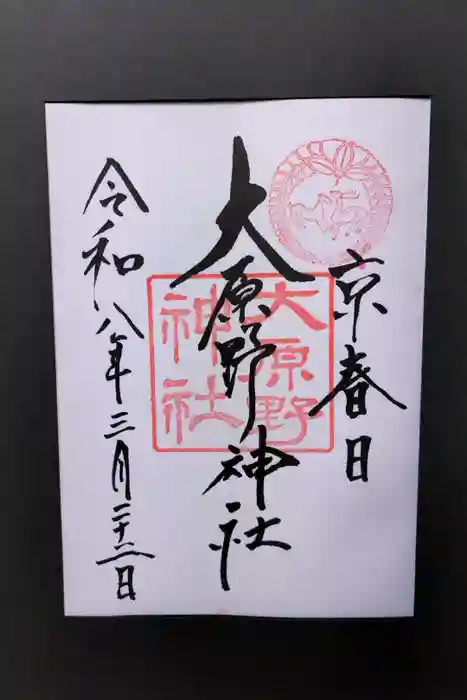 京春日
大原野神社
令和八年三月二十二日
大原野
神社